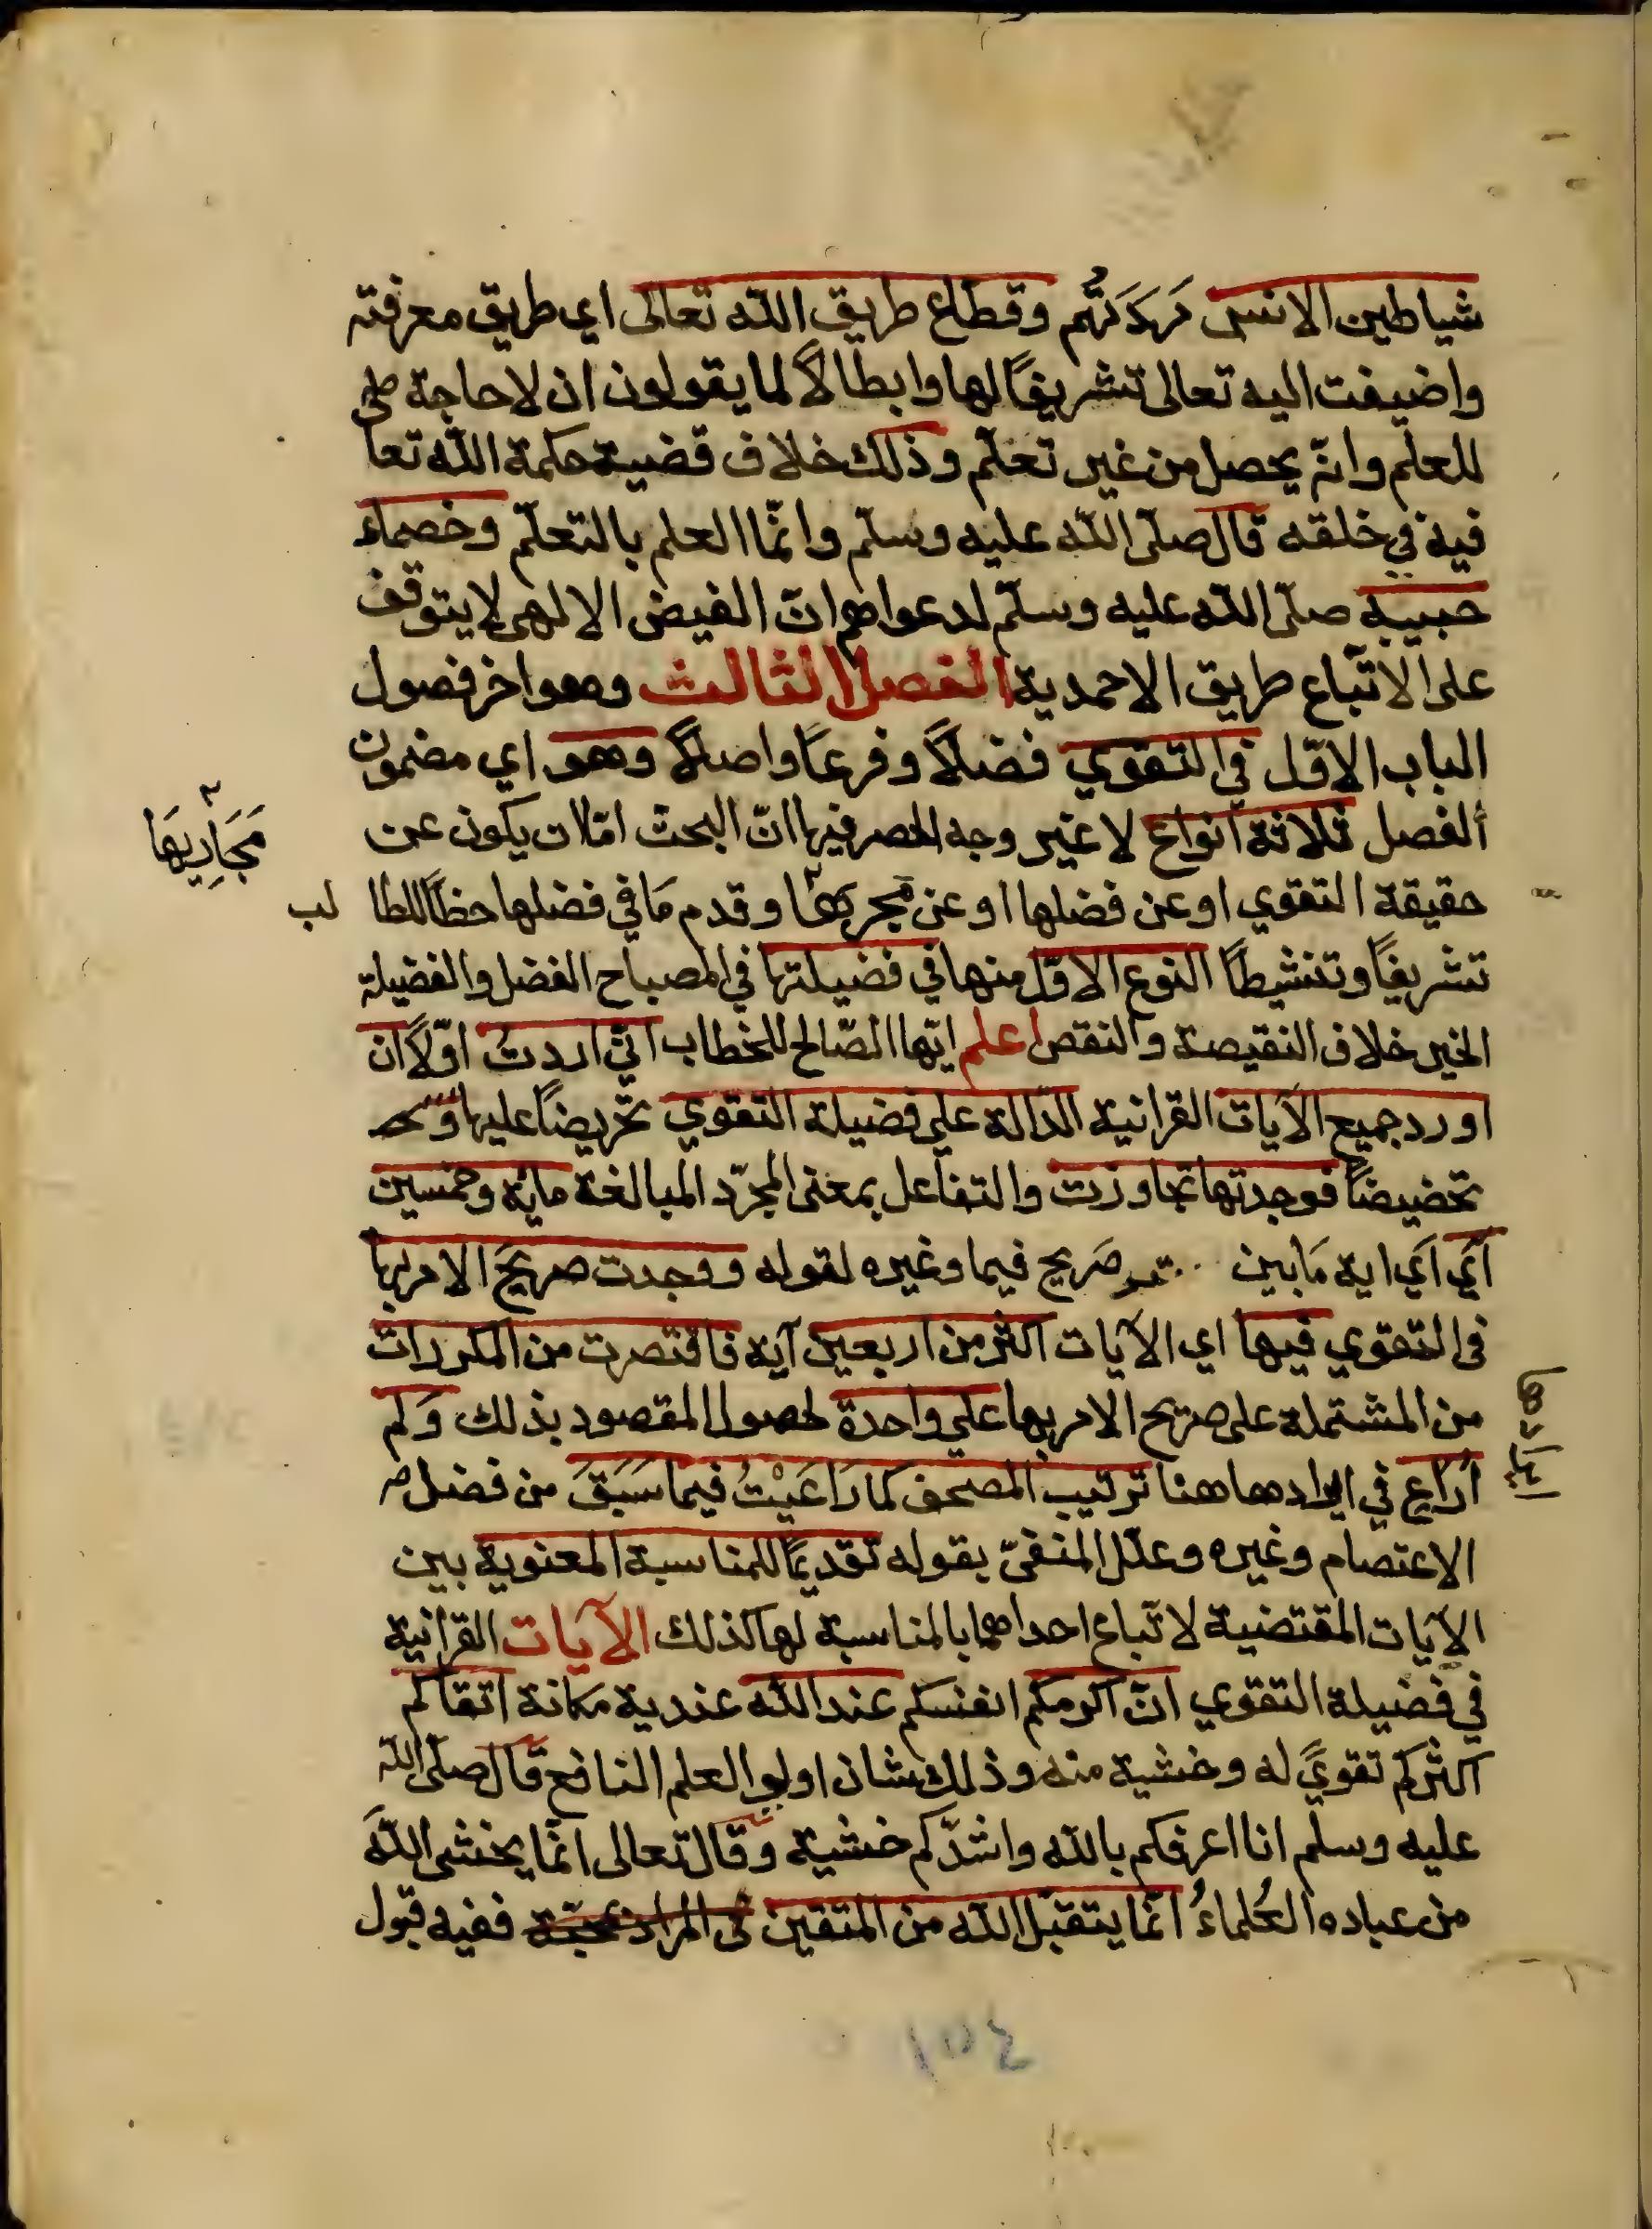 شياطين الانس مَرَدَتُهُم وقطّاع طريق الله تعالى اي طريق معرفته
واضيفت اليه تعالى تشريفًا لها وابطالاً لما يقولون ان لا حاجة
للعلم وانّه يحصل من غير تعلّم وذلك خلاف قضية حكمة الله تعا
فيه في خلقه قال صلّى الله عليه وسلّم وانّما العلم بالتعلّم وخصماء
حبيبه صلّى الله عليه وسلّم لدعواهم انّ الفيض الالهي لا يتوقف
على الاتّباع طريق الاحمدية الفصل الثالث وهو اخر فصول
الباب الاوّل في التقوي فضلاً وفرعًا واصلاً وهو اي مضمون
الفصل ثلاثة انواع لا غير وجه الحصر فيها انّ البحث امّا ان يكون عن
حقيقة التقوي او عن فضلها او عن وقدم مَا في فضلها حظًا للطا لب
مَجَارِيهَا
تشريفًا وتنشيطًا النوع الاوّل منها في فضيلتها في المصباح الفضل والفضيلة
الخير خلاف النقيصة والنقص اعلم ايّها الصّالح للخطاب انّي اردتُ اوّلاً ان
اورد جميع الآيات القرانية الدّالة على فضيلة التقوي تحريضًا عليها
تحضيضًا فوجدتها تجاوزت والتفاعل بمعنى المجرّد المبالغة مائة وخمسين
آي اي اية مَا بين صَريح فيها وغيره لقوله ووجدت صريحَ الامر بها
في التقوي فيها اي الآيات اكثر من اربعين آية فاقتصرت من المكررات
من المشتملة على صريح الامر بها على واحدة لحصول المقصود بذلك وَلم
اُرَاعِ في ايرادها هنا ترتيب المصحف كما رَاعَيْتُ فيما سَبَقَ من فضل
الاعتصام وغيره وعلل المنفيّ بقوله تقديمًا للمناسبة المعنوية بين
الآيات المقتضية لاتباع احداهما بالمناسبة لها لذلك الآيات القرانية
في فضيلة التقوي انّ اكرمكم انفسكم عند الله عندية مكانة اتقاكم
اكثركم تقوىً له وخشية منه وذلك شان اولي العلم النافع قال صلّى الله
عليه وسلم انا اعرفكم بالله واشدّكم خشية وقال تعالى انّما يخشى اللّهَ
من عباده العُلماءُ انّما يتقبّل الله من المتقين ففيه قبول